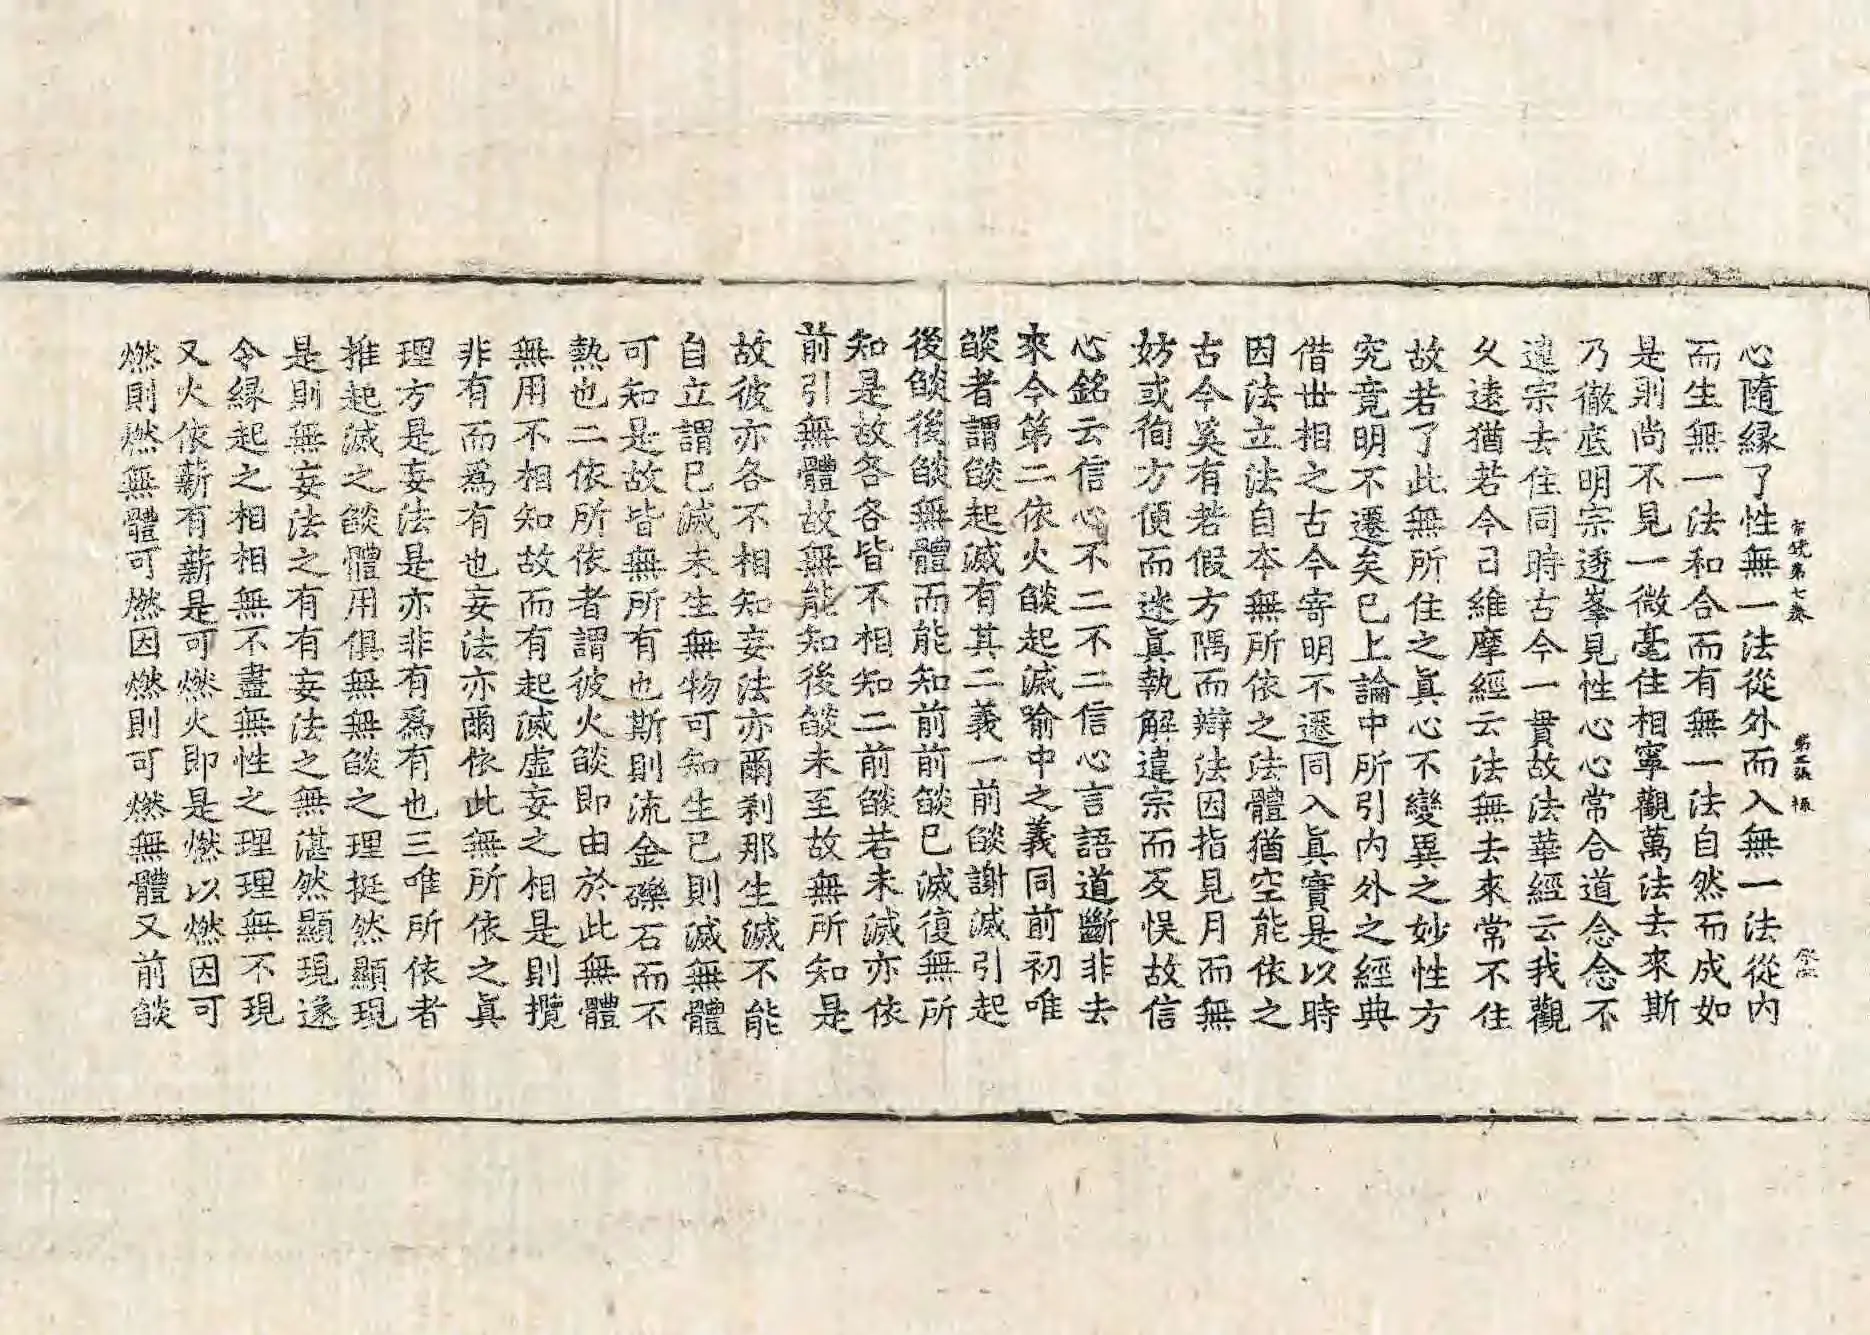 心隨緣了性無一法從外而入無一法從內
而生無一法和合而有無一法自然而成如
是則尚不見一微毫住相寧觀萬法去來斯
乃徹底明宗透峯見性心心常合道念念不
違宗去住同時古今一貫故法華經云我觀
久遠猶若今日維摩經云法無去來常不住
故若了此無所住之眞心不變異之妙性方
究竟明不遷矣已上論中所引內外之經典
借世相之古今寄明不遷同入眞實是以時
因法立法自本無所依之法體猶空能依之
古今奚有若假方隅而辯法因指見月而無
妨或徇方便而迷眞執解違宗而反悞故信
心銘云信心不二不二信心言語道斷非去
來今第二依火燄起滅喻中之義同前初唯
燄者謂燄起滅有其二義一前燄謝滅引起
後燄後燄無體而能知前前燄已滅復無所
知是故各各皆不相知二前燄若未滅亦依
前引無體故無能知後燄未至故無所知是
故彼亦各不相知妄法亦爾刹那生滅不能
自立謂已滅未生無物可知生已則滅無體
可知是故皆無所有也斯則流金礫石而不
熱也二依所依者謂彼火燄即由於此無體
無用不相知故而有起滅虛妄之相是則攬
非有而爲有也妄法亦爾依此無所依之眞
理方是妄法是亦非有爲有也三唯所依者
推起滅之燄體用俱無無燄之理挺然顯現
是則無妄法之有有妄法之無湛然顯現遂
令緣起之相相無不盡無性之理理無不現
又火依薪有薪是可燃火即是燃以燃因可
燃則燃無體可燃因燃則可燃無體又前燄
宗鏡第七卷 第三張